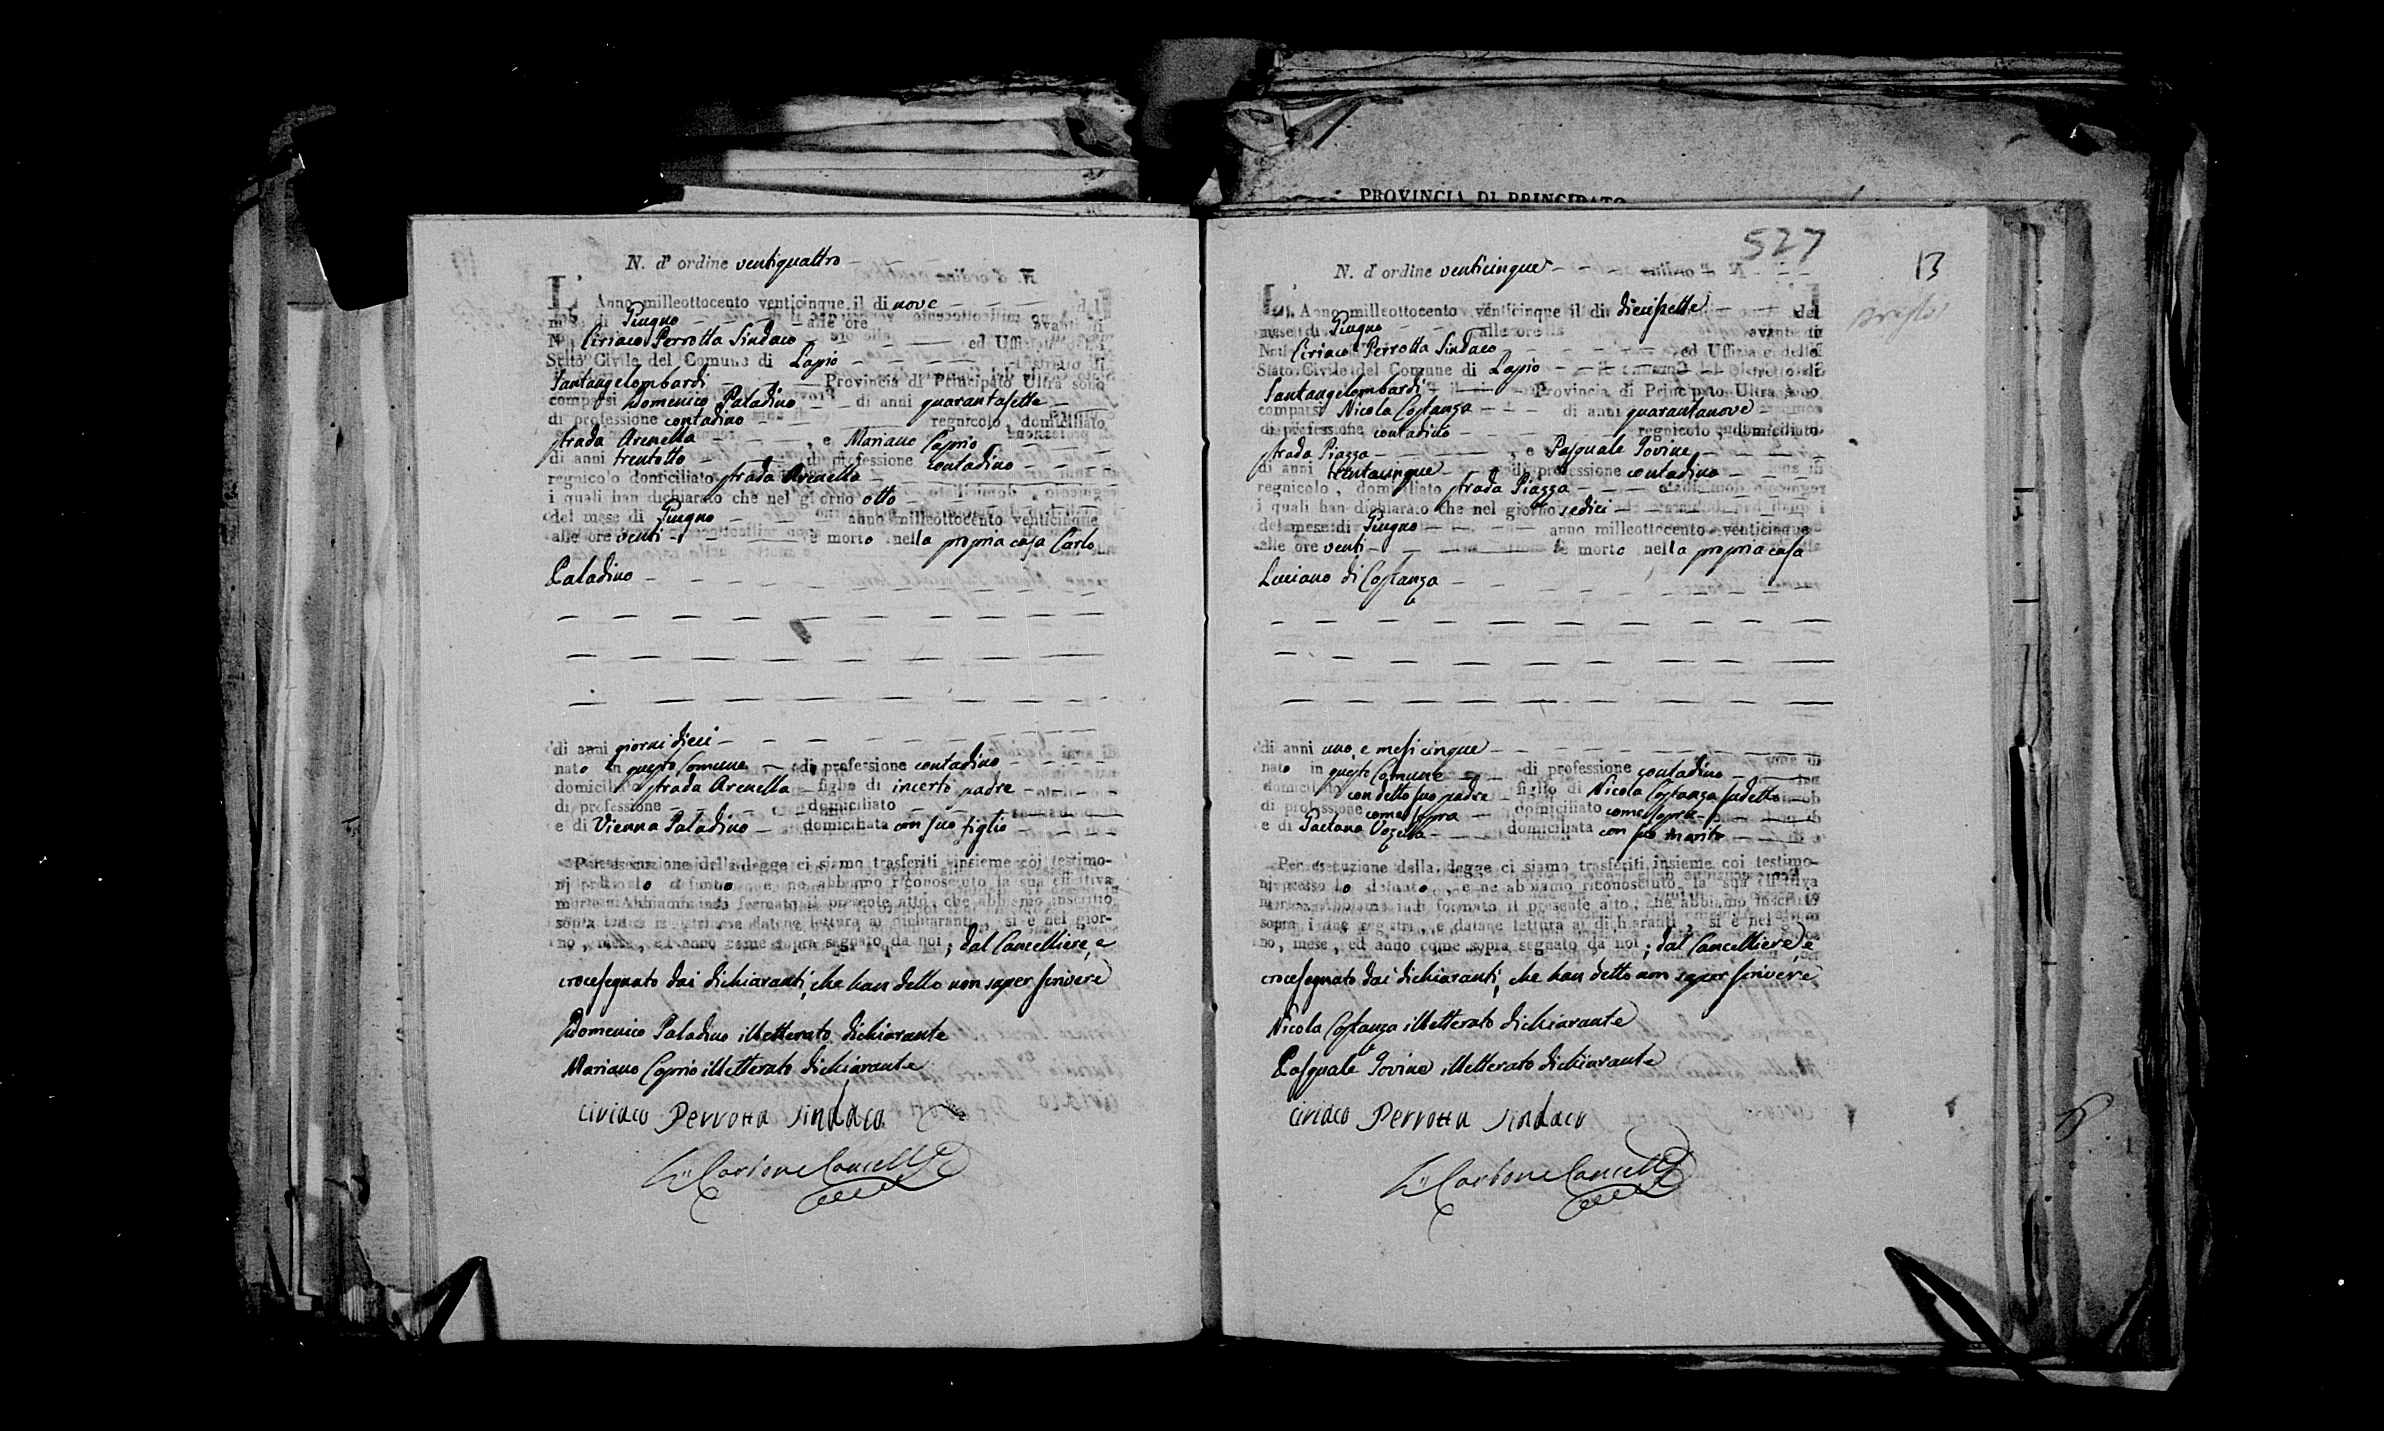 PROVINCIA DI PRINCIPATO
N. d' ordine ventiquattro
L' Anno milleottocento venticinque il di nove del
mese di Giugno alle ore avanti di
Noi Ciriaco Perrotta Sindaco ed Uffiziale dello
Stato Civile del Comune di Lapio distretto di
Santangelombardi Provincia di Principato Ultra sono
comparsi Domenico Paladino di anni quarantasette
di professione contadino regnicolo, domiciliato
strada Arenella, e Mariano Caprio
di anni trentotto di professione contadino
regnicolo domiciliato strada Arenella
i quali han dichiarato che nel giorno otto
del mese di Giugno anno milleottocento venticinque
alle ore venti è morto nella propria casa Carlo
Paladino
di anni giorni dieci
nato in questo Comune di professione contadino
domiciliato strada Arenella figlio di incerto padre
di professione domiciliato
e di Vienna Paladino domiciliata con suo figlio
Per esecuzione della legge ci siamo trasferiti insieme coi testimo-
nj presso lo defunto e ne abbiamo riconosciuto la sua effettiva
morte. Abbiamo indi formato il presente atto, che abbiamo inscritto
sopra i due registri, e datane lettura ai dichiaranti, si è nel gior-
no, mese, ed anno come sopra segnato da noi; dal Cancelliere, e
crocesegnato dai dichiaranti, che han detto non saper scrivere
Domenico Paladino illetterato dichiarante
Mariano Caprio illetterato dichiarante
Ciriaco Perrotta Sindaco
Carbone Cancell.e
527
13
N. d' ordine venticinque
L' Anno milleottocento venticinque il di diecisette del
mese di Giugno alle ore avanti di
Noi Ciriaco Perrotta Sindaco ed Uffiziale dello
Stato Civile del Comune di Lapio distretto di
Santangelombardi Provincia di Principato Ultra sono
comparsi Nicola Costanza di anni quarantanove
di professione contadino regnicolo, domiciliato
strada Piazza, e Pasquale Iovine
di anni trentacinque di professione contadino
regnicolo, domiciliato strada Piazza
i quali han dichiarato che nel giorno sedici
del mese di Giugno anno milleottocento venticinque
alle ore venti è morto nella propria casa
Luciano di Costanza
di anni uno e mesi cinque
nato in questo Comune di professione contadino
domiciliato con detto suo padre figlio di Nicola Costanza sudetto
di professione come sopra domiciliato come sopra
e di Gaetana Vozella domiciliata con suo marito
Per esecuzione della legge ci siamo trasferiti insieme coi testimo-
nj presso lo defunto, e ne abbiamo riconosciuto la sua effettiva
morte. Abbiamo indi formato il presente atto, che abbiamo inscritto
sopra i due registri, e datane lettura ai dichiaranti, si è nel gior-
no, mese, ed anno come sopra segnato da noi; dal Cancelliere, e
crocesegnato dai dichiaranti, che han detto non saper scrivere
Nicola Costanza illetterato dichiarante
Pasquale Iovine illetterato dichiarante
Ciriaco Perrotta Sindaco
Carbone Cancell.e